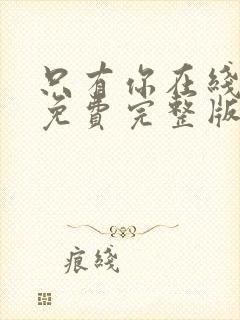 只有你在綫
免費完整版
痕綫